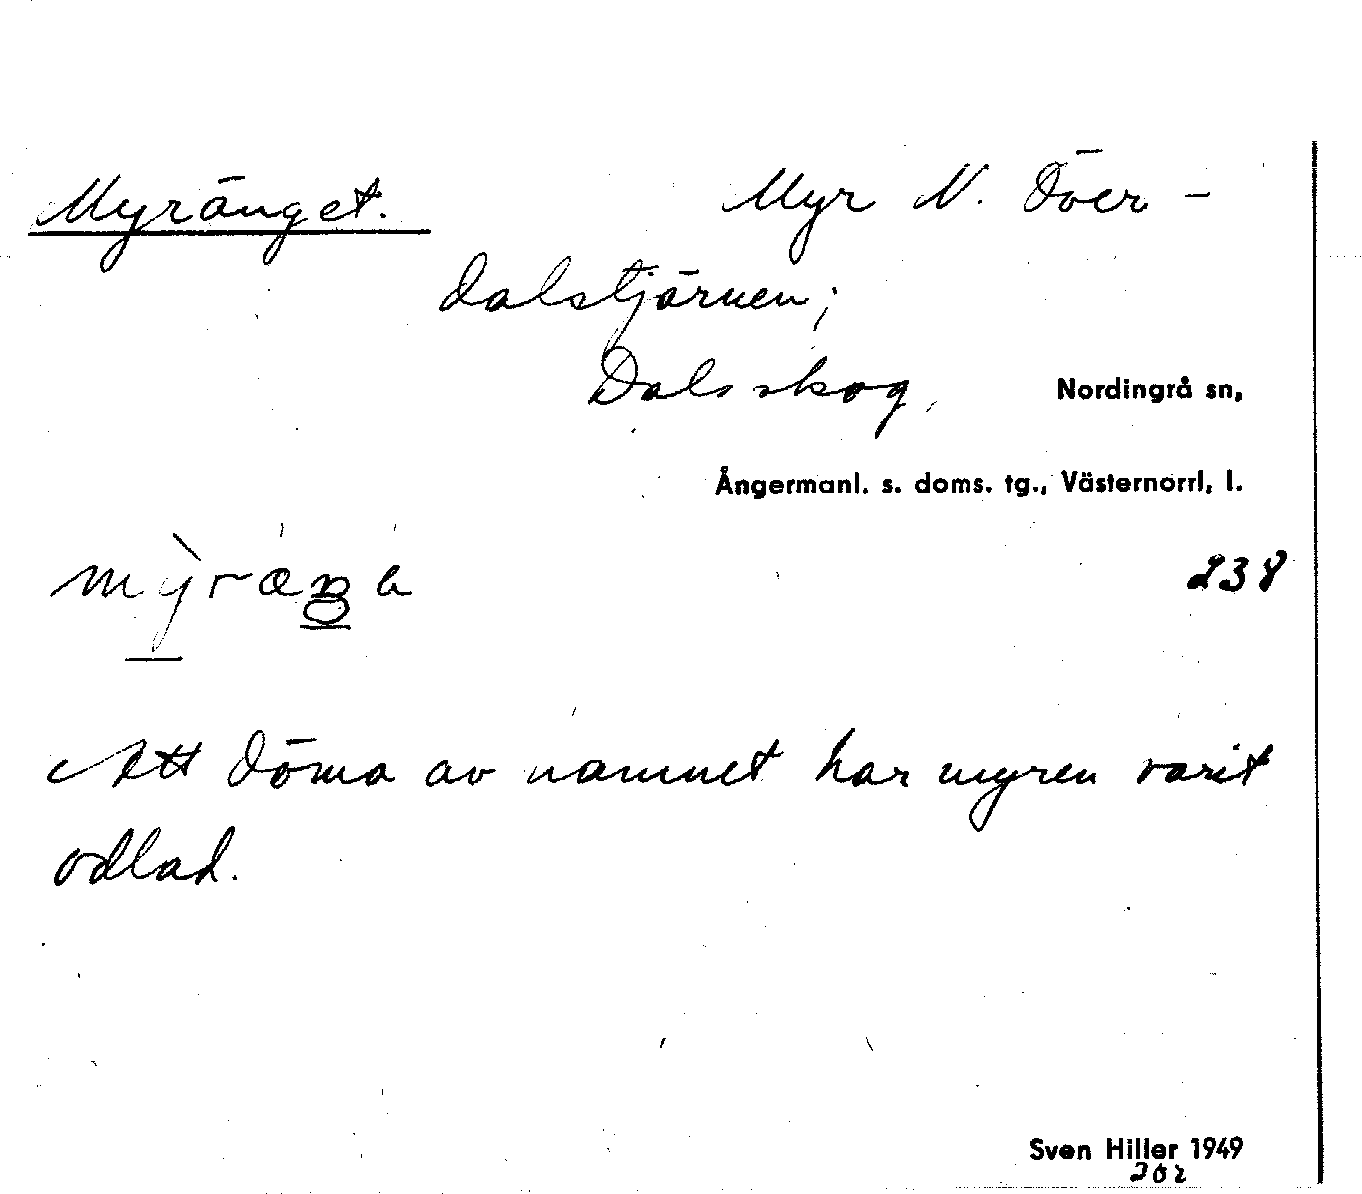 Myränget. Myr N. Över-
dalstjärnen;
Dalsskog, Nordingrå sn,
Ångermanl. s. doms. tg., Västernorrl. l.
238
Att döma av namnet har myren varit
odlad.
Sven Hiller 1949
202